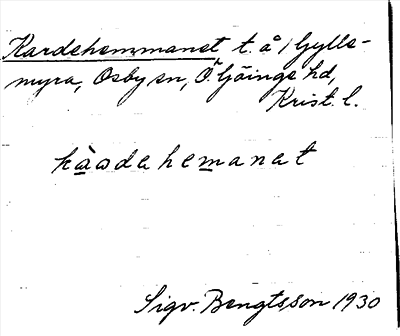 Kardehemmanet t. å / Gylls-
myra, Osby sn, Ö. Göinge hd,
Krist. l.
kàɷdahemanat
Sigv. Bengtsson 1930